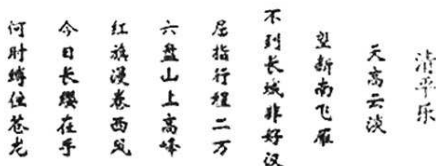 清平乐
天高云淡
望断南飞雁
不到长城非好汉
屈指行程二万
六盘山上高峰
红旗漫卷西风
今日长缨在手
何时缚住苍龙